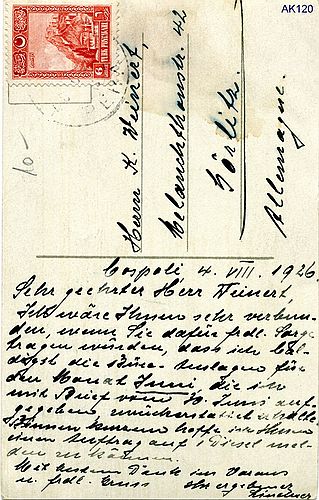 AK120
TÜRK POSTALARI
6
10-
Herrn K. Weinert,
Melanchthonstr. 42
Görlitz.
Allemagne.
Cospoli, 4. VIII. 1926.
Sehr geehrter Herr Weinert,
Ich wäre Ihnen sehr verbun-
den, wenn Sie dafür frdl. Sorge
tragen würden, dass ich bal-
digst die Büro-Auslagen für
den Monat Juni, die ich
mit Brief vom 30. Juni auf-
gegeben, zurückerstattet erhalte.
Binnen kurzem hoffe ich Ihnen
einen Auftrag auf 1 Diesel mel-
den zu können.
Mit bestem Dank im Voraus
u. frdl. Gruss Ihr ergebener